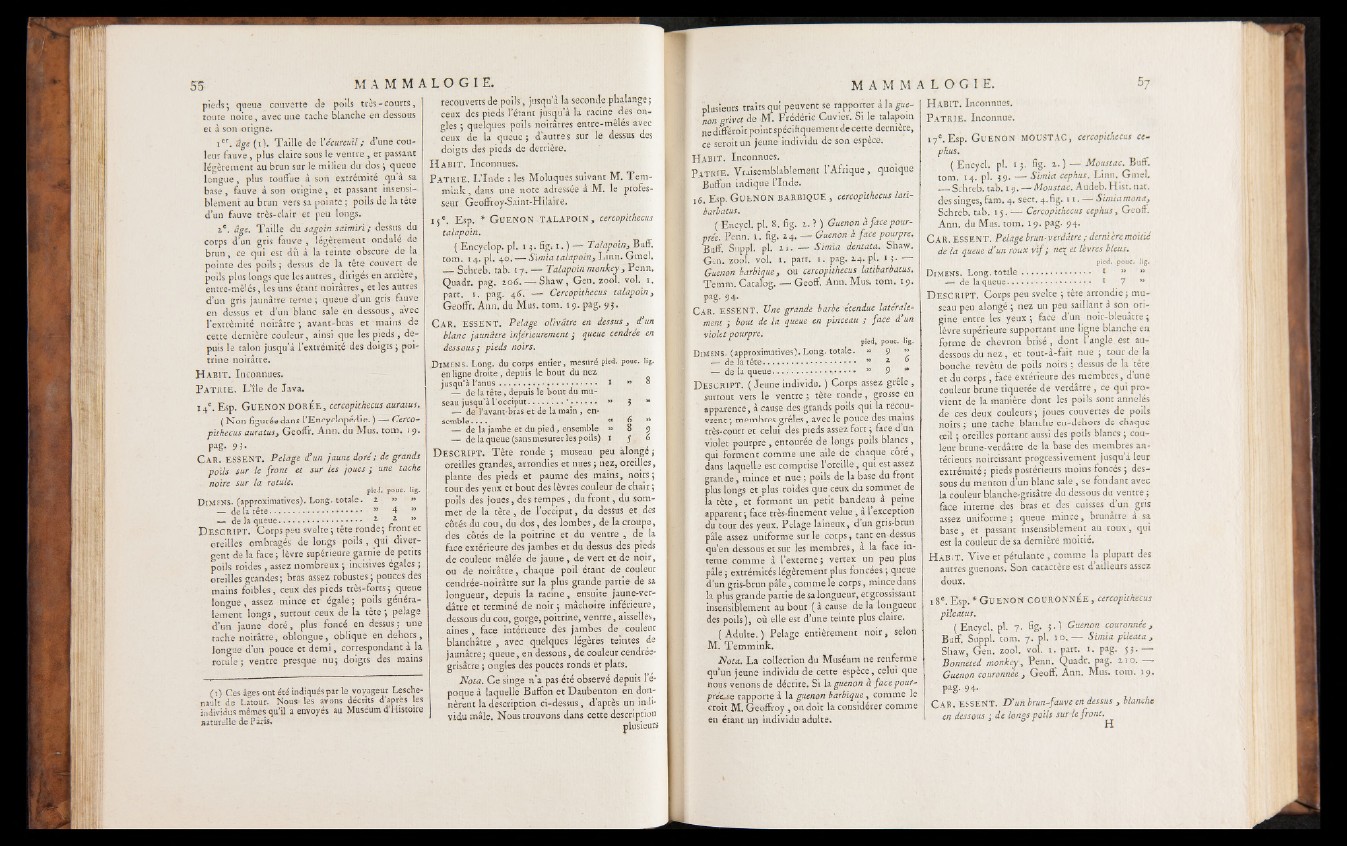 55
MAMMALOGIE.
pieds; queue couverte de poils très-courts,
toute noire, avec une tache blanche en dessous
et à son origne.
1er. âge (1). Taille de l'écureuil; d'une cou-
leur fauve, plus claire sous le ventre, et passant
légèrement au brun sur le milieu du dos; queue
longue, plus touffue à son extrémité qu'à sa
base, fauve à son origine, et passant insensi-
blement au brun vers sa pointe; poils de la tête
d'un fauve très-clair et peu longs.
2e. âge. Taille du sagoin saïmiri; dessus du
corps d'un gris fauve, légèrement ondulé de
brun, ce qui est dû à la teinte obscure de la
pointe des poils; dessus de la tête couvert de
poils plus longs que les autres, dirigés en arrière,
entre-mêlés, les uns étant noirâtres, et les autres
d'un gris jaunâtre terne; queue d'un gris fauve
en dessus et d'un blanc sale en dessous, avec
l'extrémité noirâtre; avant-bras et mains de
cette dernière couleur, ainsi que les pieds, de-
puis le talon jusqu'à l'extrémité des doigts; poi-
trine noirâtre.
HABIT. Inconnues.
PATRIE. L'île de Java.
14e. Esp. GUENON DORÉE, cercopithecus auratus.
( Non figurée dans l'Encyclopédie. ) — Cerco-
pithecus auratus, Geoffr. Ann. du Mus. tom. 19.
pag. 93.
CAR. ESSENT. Pelage d'un jaune doré; de grands
poils sur le front et sur les joues; une tache
noire sur la rotule.
pied. pouc. lig.
DIMENS. (approximatives). Long. totale. 2 » »
— de la tête.................. » 4 »
— de la queue................. 2 2 »
DESCRIPT. Corps peu svelte; tête ronde; front et
oreilles ombragés de longs poils, qui diver-
gent de la face; lèvre supérieure garnie de petits
poils roides, assez nombreux; incisives égales;
oreilles grandes; bras assez robustes; pouces des
mains foibles, ceux des pieds très-forts; queue
longue, assez mince et égale; poils généra-
lement longs, surtout ceux de la tête; pelage
d'un jaune doré, plus foncé en dessus; une
tache noirâtre, oblongue, oblique en dehors,
longue d'un pouce et demi, correspondant à la
rotule; ventre presque nu; doigts des mains
(1) Ces âges ont été indiqués par le voyageur Lesche-
nault de Latour. Nous les avons décrits d'après les
individus mêmes qu'il a envoyés au Muséum d'Histoire
naturelle de Paris.
recouverts de poils, jusqu'à la seconde phalange;
ceux des pieds l'étant jusqu'à la racine des on-
gles; quelques poils noirâtres entre-mêlés avec
ceux de la queue; d'autres sur le dessus des
doigts des pieds de derrière.
HABIT. Inconnues.
PATRIE. L'Inde: les Moluques suivant M. Tem-
mink, dans une note adressée à M. le profes-
seur Geoffroy-Saint-Hilaire.
15e. Esp. * GUENON TALAPOIN, cercopithecus
talapoin.
( Encyclop. pl. 14. fig. 1. ) — Talapoin, Buff.
tom. 14. pl. 40. — Simia talapoin, Linn. Gmel.
— Schreb. tab. 17. — Talapoin monkey, Penn.
Quadr. pag. 206. — Shaw, Gen. zool. vol. 1.
part. 1. pag. 46. — Cercopithecus talapoin,
Geoffr. Ann. du Mus. tom. 19. pag. 93.
CAR. ESSENT. Pelage olivâtre en dessus, d'un
blanc jaunâtre inférieurement; queue cendrée en
dessous; pieds noirs.
DIMENS. Long. du corps entier, mesuré pied. pouc. lig.
en ligne droite, depuis le bout du nez
jusqu'à l'anus..................... 1 » 8
— de la tête, depuis le bout du mu-
seau jusqu'à l'occiput............... » 3 »
— de l'avant-bras et de la main, en-
semble.... » 6 »
— de la jambe et du pied, ensemble » 8 9
— de la queue (sans mesurer les poils) 1 5 6
DESCRIPT. Tête ronde; museau peu alongé;
oreilles grandes, arrondies et nues; nez, oreilles,
plante des pieds et paume des mains, noirs;
tour des yeux et bout des lèvres couleur de chair;
poils des joues, des tempes, du front, du som-
met de la tête, de l'occiput, du dessus et des
côtés du cou, du dos, des lombes, de la croupe,
des côtés de la poitrine et du ventre, de la
face extérieure des jambes et du dessus des pieds
de couleur mêlée de jaune, de vert et de noir,
ou de noirâtre, chaque poil étant de couleur
cendrée-noirâtre sur la plus grande partie de sa
longueur, depuis la racine, ensuite jaune-ver-
dâtre et terminé de noir; mâchoire inférieure,
dessous du cou, gorge, poitrine, ventre, aisselles,
aines, face intérieure des jambes de couleur
blanchâtre, avec quelques légères teintes de
jaunâtre; queue, en dessous, de couleur cendrée-
grisâtre; ongles des pouces ronds et plats.
Nota. Ce singe n'a pas été observé depuis l'é-
poque à laquelle Buffon et Daubenton en don-
nèrent la description ci-dessus, d'après un indi-
vidu mâle. Nous trouvons dans cette description
plusieurs
MAMMALOGIE.
57
plusieurs traits qui peuvent se rapporter à la gue-
non grivet de M. Frédéric Cuvier. Si le talapoin
ne différoit point spécifiquement de cette dernière,
ce seroit un jeune individu de son espèce.
HABIT. Inconnues.
PATRIE. Vraisemblablement l'Afrique, quoique
Buffon indique l'Inde.
16. Esp. GUENON BARBIQUE, cercopithecus lati-
barbatus.
( Encycl. pl. 8. fig. 2. ? ) Guenon à face pour-
prée. Penn. 1. fig. 24. — Guenon à face pourpre.
Buff. Suppl. pl. 21. — Simia dentata. Shaw.
Gen. zool. vol. 1. part. 1. pag. 24. pl. 13. —
Guenon barbique, ou cercopithecus latibarbatus.
Temm. Catalog. — Geoff. Ann. Mus. tom. 19.
pag. 94.
CAR. ESSENT. Une grande barbe étendue latérale-
ment; bout de la queue en pinceau; face d'un
violet pourpre.
pied. pouc. lig.
DIMENS. (approximatives). Long. totale. » 9 »
— de la tête.................. » 2 6
— de la queue................. » 9 »
DESCRIPT. ( Jeune individu. ) Corps assez grêle,
surtout vers le ventre; tête ronde, grosse en
apparence, à cause des grands poils qui la recou-
vrent; membres grêles, avec le pouce des mains
très-court et celui des pieds assez fort; face d'un
violet pourpre, entourée de longs poils blancs,
qui forment comme une aile de chaque côté,
dans laquelle est comprise l'oreille, qui est assez
grande, mince et nue; poils de la base du front
plus longs et plus roides que ceux du sommet de
la tête, et formant un petit bandeau à peine
apparent; face très-finement velue, à l'exception
du tour des yeux. Pelage laineux, d'un gris-brun
pâle assez uniforme sur le corps, tant en dessus
qu'en dessous et sur les membres, à la face in-
terne comme à l'externe; vertex un peu plus
pâle; extrémités légèrement plus foncées; queue
d'un gris-brun pâle, comme le corps, mince dans
la plus grande partie de sa longueur, et grossissant
insensiblement au bout ( à cause de la longueur
des poils), où elle est d'une teinte plus claire.
( Adulte. ) Pelage entièrement noir, selon
M. Temmink.
Nota. La collection du Muséum ne renferme
qu'un jeune individu de cette espèce, celui que
nous venons de décrire. Si la guenon à face pour-
prée se rapporte à la guenon barbique, comme le
croit M. Geoffroy, on doit la considérer comme
en étant un individu adulte.
HABIT. Inconnues.
PATRIE. Inconnue.
17e. Esp. GUENON MOUSTAC, cercopithecus ce-
phus.
( Encycl. pl. 13. fig. 2. ) — Moustac. Buff.
tom. 14. pl. 39. — Simia cephus. Linn. Gmel.
— Schreb. tab. 19. — Moustac. Audeb. Hist. nat.
des singes, fam. 4. sect. 4. fig. 11. — Simia mona,
Schreb. tab. 15. — Cercopithecus cephus, Geoff.
Ann. du Mus. tom. 19. pag. 94.
CAR. ESSENT. Pelage brun-verdâtre; dernière moitié
de la queue d'un roux vif; nez et lèvres bleus.
pied. pouc. lig.
DIMENS. Long. totale............... 1 » »
— de la queue.................. 1 7 »
DESCRIPT. Corps peu svelte; tête arrondie; mu-
seau peu alongé; nez un peu saillant à son ori-
gine entre les yeux; face d'un noir-bleuâtre;
lèvre supérieure supportant une ligne blanche en
forme de chevron brisé, dont l'angle est au-
dessous du nez, et tout-à-fait nue; tour de la
bouche revêtu de poils noirs; dessus de la tête
et du corps, face extérieure des membres, d'une
couleur brune tiquetée de verdâtre, ce qui pro-
vient de la manière dont les poils sont annelés
de ces deux couleurs; joues couvertes de poils
noirs; une tache blanche en-dehors de chaque
œil; oreilles portant aussi des poils blancs; cou-
leur brune-verdâtre de la base des membres an-
térieurs noircissant progressivement jusqu'à leur
extrémité; pieds postérieurs moins foncés; des-
sous du menton d'un blanc sale, se fondant avec
la couleur blanche-grisâtre du dessous du ventre;
face interne des bras et des cuisses d'un gris
assez uniforme; queue mince, brunâtre à sa
base, et passant insensiblement au roux, qui
est la couleur de sa dernière moitié.
HABIT. Vive et pétulante, comme la plupart des
autres guenons. Son caractère est d'ailleurs assez
doux.
18e. Esp. * GUENON COURONNÉE, cercopithecus
pileatus.
( Encycl. pl. 7. fig. 3. ) Guenon couronnée,
Buff. Suppl. tom. 7. pl. 10. — Simia pileata,
Shaw, Gen. zool. vol. 1. part. 1. pag. 53. —
Bonneted monkey, Penn. Quadr. pag. 210. —
Guenon couronnée, Geoff. Ann. Mus. tom. 19.
pag. 94.
CAR. ESSENT. D'un brun-fauve en dessus, blanche
en dessous; de longs poils sur le front.
H